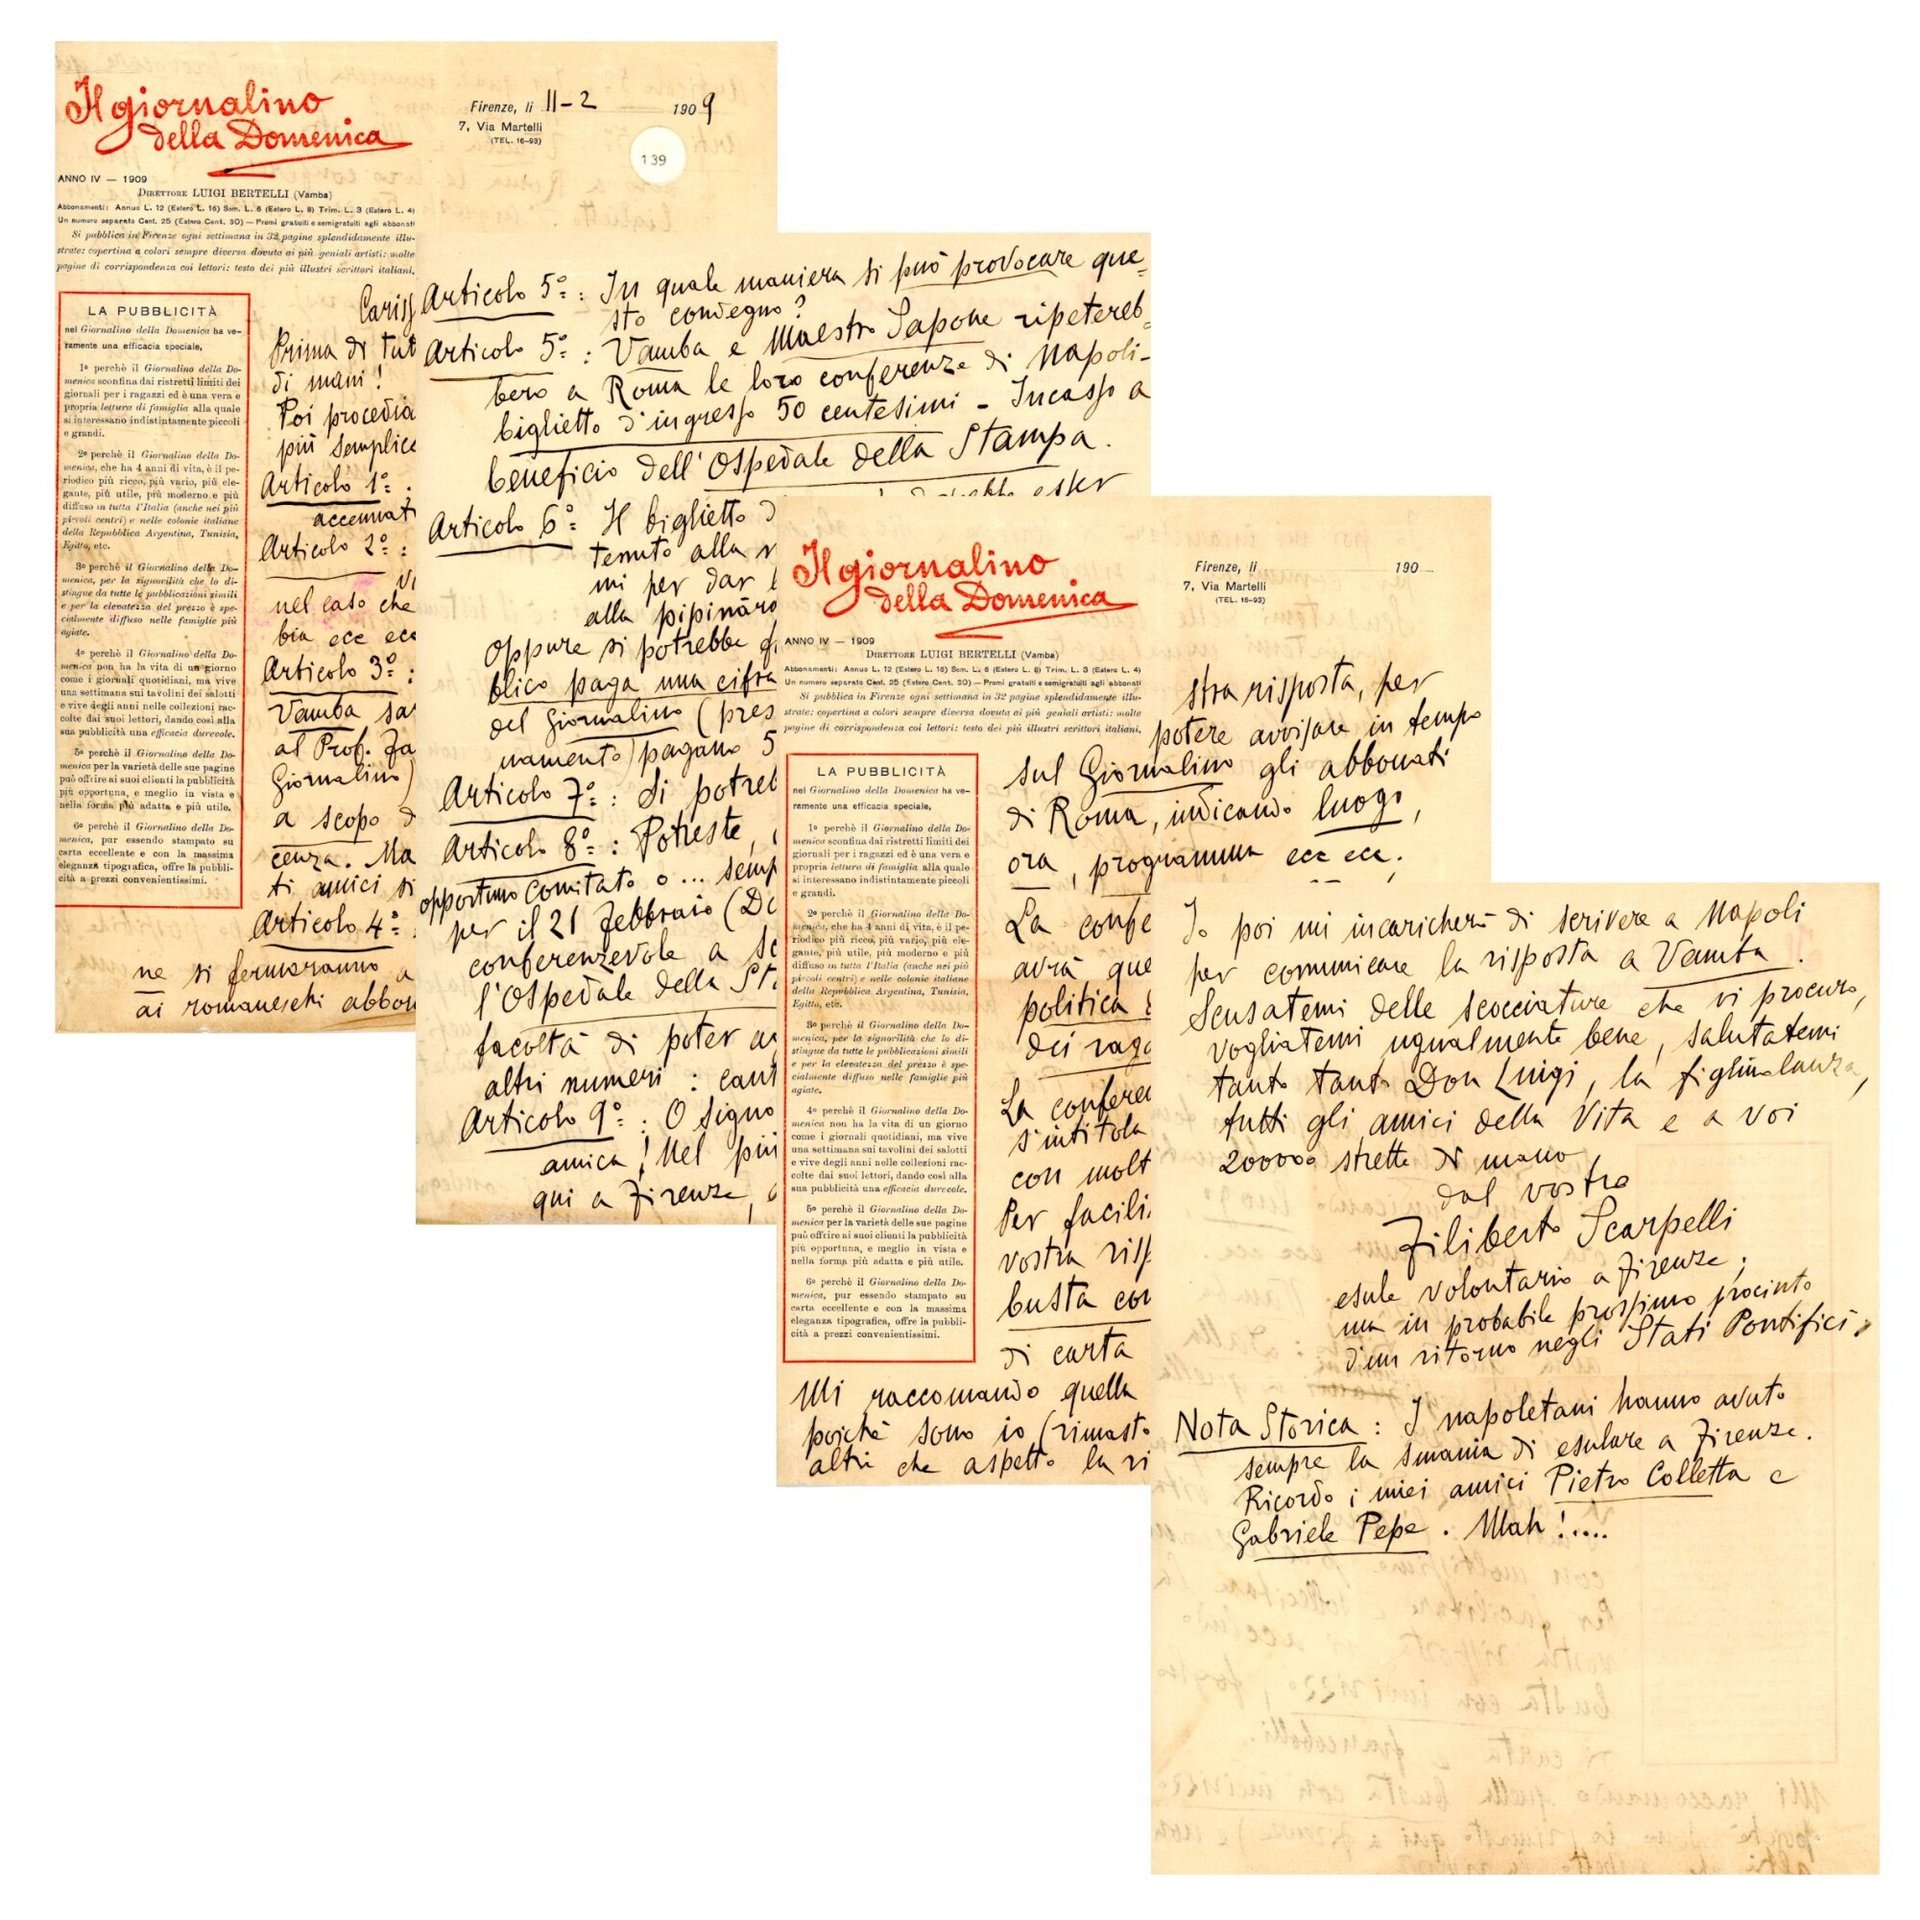 Il giornalino
della Domenica
ANNO IV — 1909
DIRETTORE LUIGI BERTELLI (Vamba)
Abbonamenti: Annuo L. 12 (Estero L. 16) Sem. L. 6 (Estero L. 8) Trim. L. 3 (Estero L. 4)
Un numero separato Cent. 25 (Estero Cent. 30) — Premi gratuiti e semigratuiti agli abbonati
Si pubblica in Firenze ogni settimana in 32 pagine splendidamente illu-
strate: copertina a colori sempre diversa dovuta ai più geniali artisti: molte
pagine di corrispondenza coi lettori: testo dei più illustri scrittori italiani.
Firenze, li 11-2 1909
7, Via Martelli
(TEL. 16-93)
139
LA PUBBLICITÀ
nel Giornalino della Domenica ha ve-
ramente una efficacia speciale,
1º perchè il Giornalino della Do-
menica sconfina dai ristretti limiti dei
giornali per i ragazzi ed è una vera e
propria lettura di famiglia alla quale
si interessano indistintamente piccoli
e grandi.
2º perchè il Giornalino della Do-
menica, che ha 4 anni di vita, è il pe-
riodico più ricco, più vario, più ele-
gante, più utile, più moderno e più
diffuso in tutta l'Italia (anche nei più
piccoli centri) e nelle colonie italiane
della Repubblica Argentina, Tunisia,
Egitto, etc.
3º perchè il Giornalino della Do-
menica, per la signorilità che lo di-
stingue da tutte le pubblicazioni simili
e per la elevatezza del prezzo è spe-
cialmente diffuso nelle famiglie più
agiate.
4º perchè il Giornalino della Do-
menica non ha la vita di un giorno
come i giornali quotidiani, ma vive
una settimana sui tavolini dei salotti
e vive degli anni nelle collezioni rac-
colte dai suoi lettori, dando così alla
sua pubblicità una efficacia durevole.
5º perchè il Giornalino della Do-
menica per la varietà delle sue pagine
può offrire ai suoi clienti la pubblicità
più opportuna, e meglio in vista e
nella forma più adatta e più utile.
6º perchè il Giornalino della Do-
menica, pur essendo stampato su
carta eccellente e con la massima
eleganza tipografica, offre la pubbli-
cità a prezzi convenientissimi.
Cariss
Prima di tut
di mani!
Poi procedia
più semplice
Articolo 1º:
accennat
Articolo 2º:
nel caso che
bia ecc ecc
Articolo 3º:
Vamba sa
al Prof. Fa
Giornalino)
a scopo d
cenza. Ma
ti amici si
Articolo 4º:
ne si fermeranno a
ai romaneschi abbon
Articolo 5º: In quale maniera si può provocare que-
sto convegno?
Articolo 5º: Vamba e Maestro Sapone ripetereb-
bero a Roma le loro conferenze di Napoli-
biglietto d'ingresso 50 centesimi - Incasso a
beneficio dell'Ospedale della Stampa.
Articolo 6º Il biglietto d
tenuto alla
mi per dar
alla pipinàro
oppure si potrebbe
blico paga una cifra
del Giornalino (pres
namento) pagano 5
Articolo 7º: Si potreb
Articolo 8º: Potreste,
opportuno Comitato o... semp
per il 21 Febbraio (Do
conferenzevole a
l'Ospedale della St
facoltà di poter
altri numeri: cant
Articolo 9º: O Signo
amica! Nel più
qui a Firenze,
Il giornalino
della Domenica
ANNO IV — 1909
DIRETTORE LUIGI BERTELLI (Vamba)
Abbonamenti: Annuo L. 12 (Estero L. 16) Sem. L. 6 (Estero L. 8) Trim. L. 3 (Estero L. 4)
Un numero separato Cent. 25 (Estero Cent. 30) — Premi gratuiti e semigratuiti agli abbonati
Si pubblica in Firenze ogni settimana in 32 pagine splendidamente illu-
strate: copertina a colori sempre diversa dovuta ai più geniali artisti: molte
pagine di corrispondenza coi lettori: testo dei più illustri scrittori italiani.
Firenze, li 190
7, Via Martelli
(TEL. 16-93)
LA PUBBLICITÀ
nel Giornalino della Domenica ha ve-
ramente una efficacia speciale,
1º perchè il Giornalino della Do-
menica sconfina dai ristretti limiti dei
giornali per i ragazzi ed è una vera e
propria lettura di famiglia alla quale
si interessano indistintamente piccoli
e grandi.
2º perchè il Giornalino della Do-
menica, che ha 4 anni di vita, è il pe-
riodico più ricco, più vario, più ele-
gante, più utile, più moderno e più
diffuso in tutta l'Italia (anche nei più
piccoli centri) e nelle colonie italiane
della Repubblica Argentina, Tunisia,
Egitto, etc.
3º perchè il Giornalino della Do-
menica, per la signorilità che lo di-
stingue da tutte le pubblicazioni simili
e per la elevatezza del prezzo è spe-
cialmente diffuso nelle famiglie più
agiate.
4º perchè il Giornalino della Do-
menica non ha la vita di un giorno
come i giornali quotidiani, ma vive
una settimana sui tavolini dei salotti
e vive degli anni nelle collezioni rac-
colte dai suoi lettori, dando così alla
sua pubblicità una efficacia durevole.
5º perchè il Giornalino della Do-
menica per la varietà delle sue pagine
può offrire ai suoi clienti la pubblicità
più opportuna, e meglio in vista e
nella forma più adatta e più utile.
6º perchè il Giornalino della Do-
menica, pur essendo stampato su
carta eccellente e con la massima
eleganza tipografica, offre la pubbli-
cità a prezzi convenientissimi.
stra risposta, per
potere avvisare in tempo
sul Giornalino gli abbonati
di Roma, indicando luogo,
ora, programma ecc ecc.
La confe
avrà que
politica
dei raga
La conferen
s'intitola
con molt
Per facili
vostra risp
busta con
di carta
Mi raccomando quella
poichè sono io (rimasto
altri che aspetto la ri
Io poi mi incaricherò di scrivere a Napoli
per comunicare la risposta a Vamba.
Scusatemi delle scocciature che vi procuro,
vogliatemi ugualmente bene, salutatemi
tanto tanto Don Luigi, la figliuolanza,
tutti gli amici della Vita e a voi
200000 strette di mano,
dal vostro
Filiberto Scarpelli
esule volontario a Firenze;
ma in probabile prossimo procinto
d'un ritorno negli Stati Pontifici.
Nota Storica: I napoletani hanno avuto
sempre la smania di esulare a Firenze.
Ricordo i miei amici Pietro Colletta e
Gabriele Pepe. Mah!....